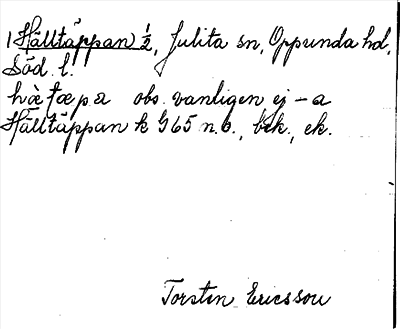 1 Hälltäppan ½, Julita sn, Oppunda hd,
Söd. l.
hæ̀tæpa obs. vanligen ej -a
Hälltäppan k G65 n.ö., bek, ek.
Torsten Ericsson